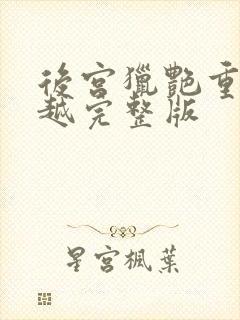 後宮獵艷重
越完整版
星宮楓葉